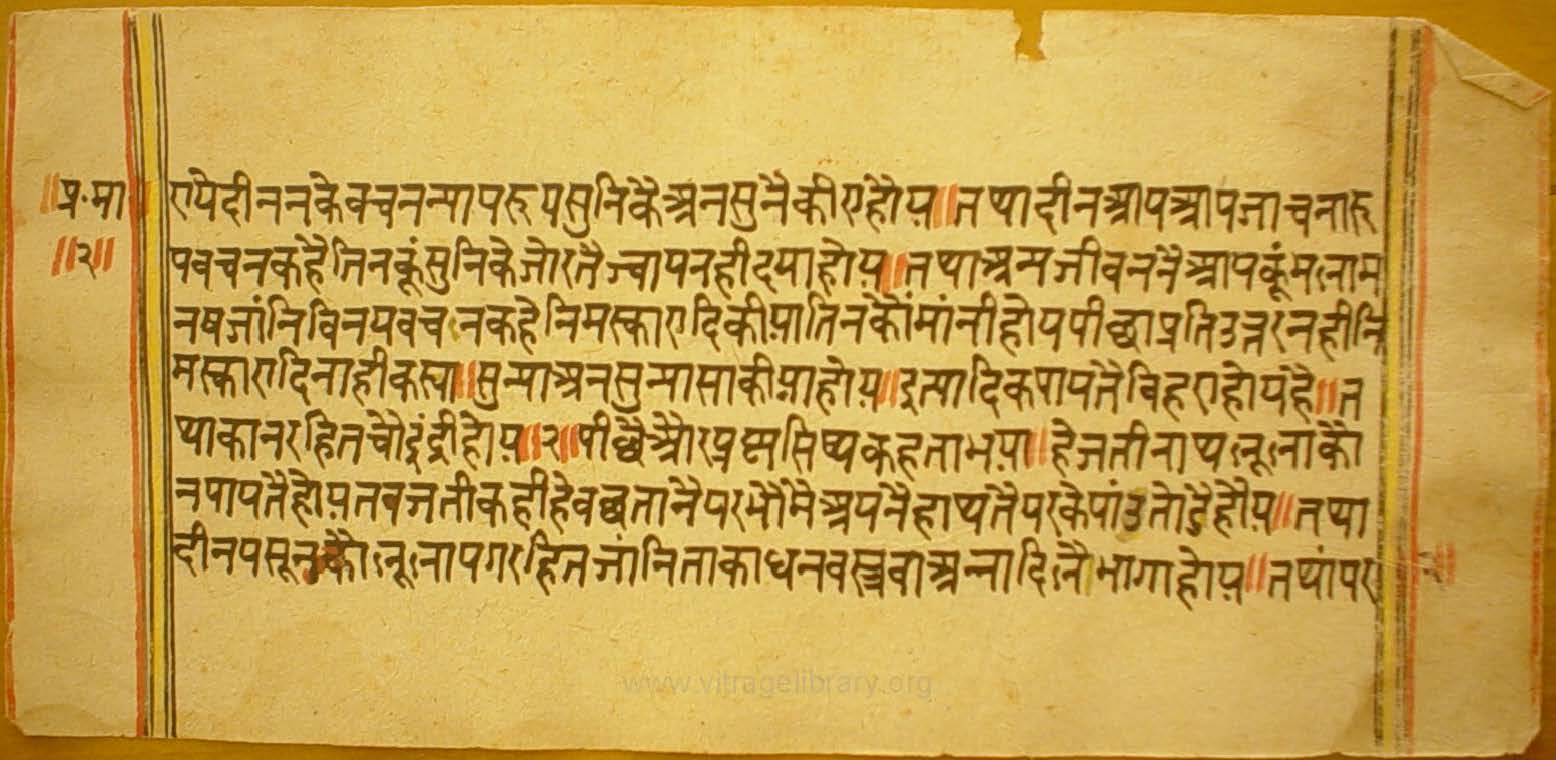 ॥प्र.मा
॥२॥
राषे दीननके वचन न्याय रूप सुनिकै अनसुनै कीए होय॥ तथा दीन आप आप जाचना रू
प वचन कहै तिनकूं सुनिके जोरतै ज्वाप नही दया होय॥ तथा अन जीवननै आपकूं भला म
नष जांनि विनय वचन कहे निमस्कारादि कीया तिनकौं मांनी होय पीछा प्रति उत्तर नही नि
मस्कारादि नाही कस्या॥ सुन्या अनसुन्या साकीया होय॥ इत्यादिक पापतै बहिरा होय है॥ त
था कान रहित चौइंद्री होय॥२॥ पीछै और प्रष्ण सिष्य कहता भया॥ हे जतीनाथ लूला कौ
न पापतै होय तब जती कही हे वछ तानै पर भौमे अपनै हाथतै परके पांउ तोडै होय॥ तथा
दीन पसूनकौ लूला पग रहित जांनि ताका धन वस्त्र वा अन्नादि लै भागा होय॥ तथा पर
www.vitragelibrary.org